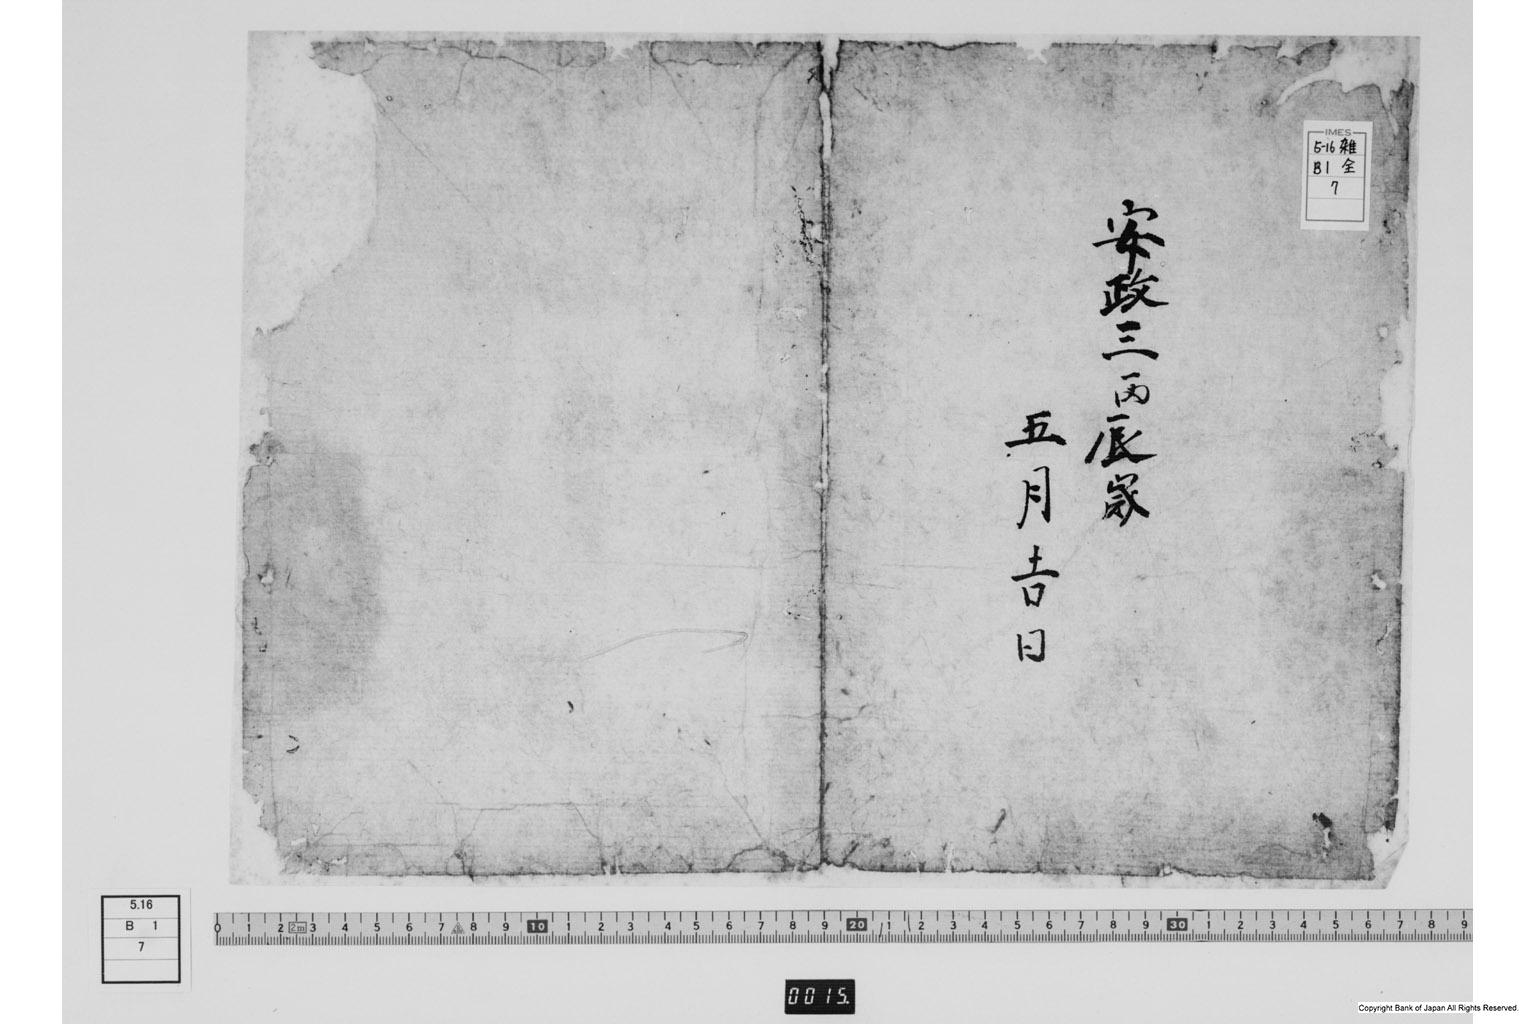 安政三丙辰歳
五月吉日
IMES
5-16 雑
B1 全
7
5.16
B 1
7
0 1 2 2m 3 4 5 6 7 8 9 10 1 2 3 4 5 6 7 8 9 20 1 2 3 4 5 6 7 8 9 30 1 2 3 4 5 6 7 8 9
0015.
Copyright Bank of Japan All Rights Reserved.